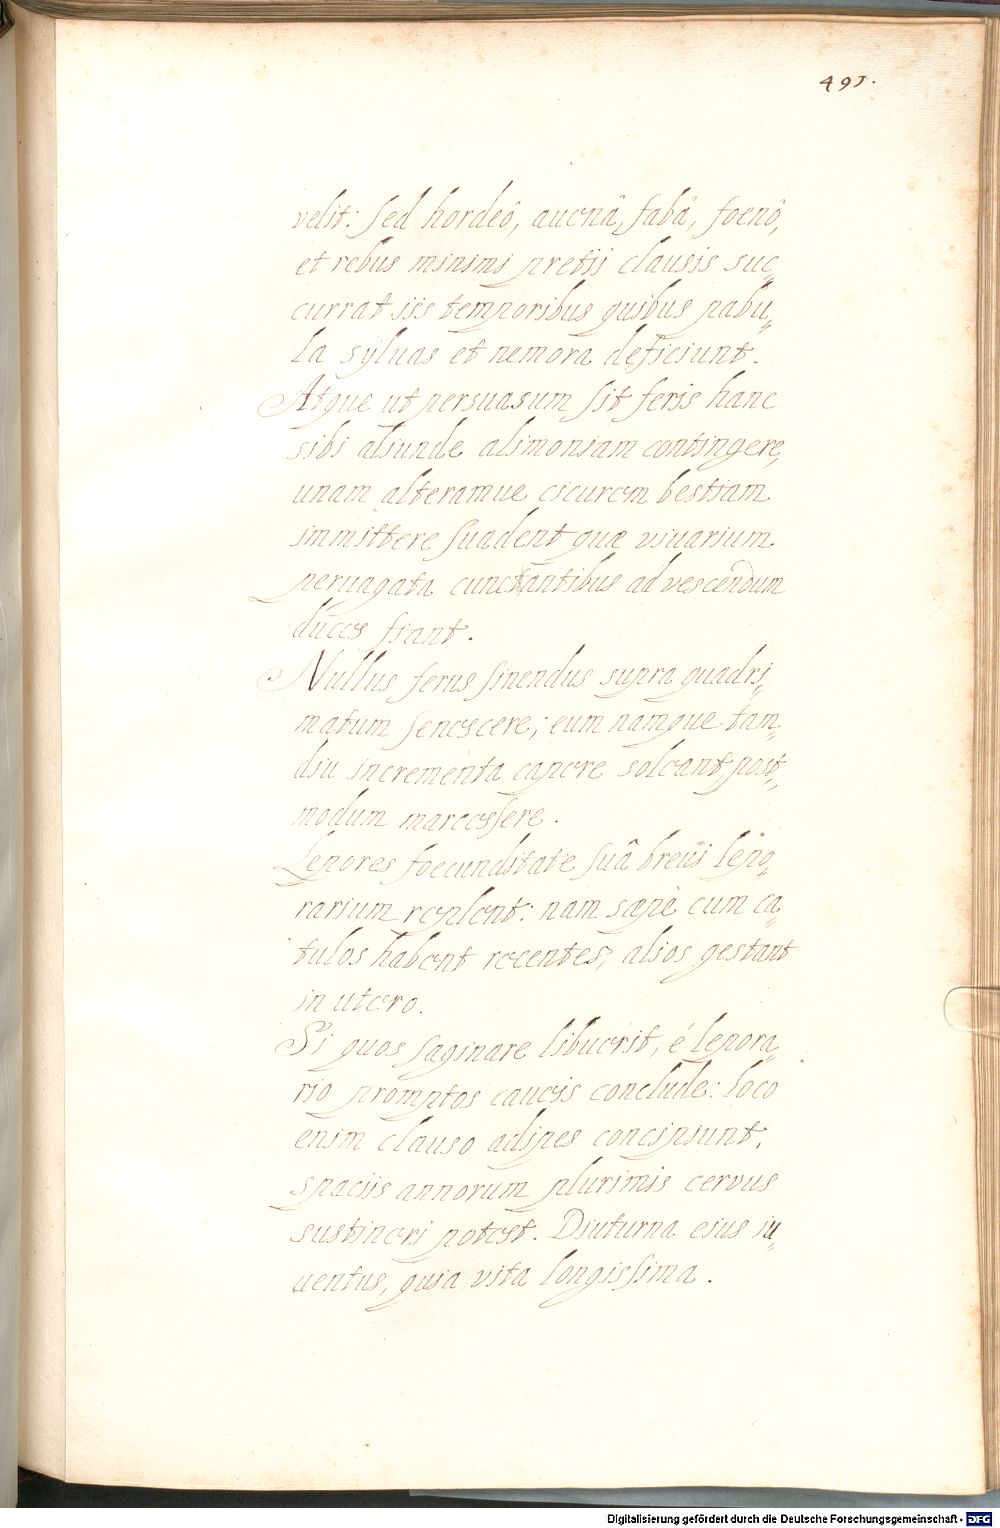 491.
velit: sed hordeô, auenâ, fabâ, foenô,
et rebus minimi pretii clausis suc=
currat iis temporibus quibus pabu=
la syluas et nemora deficiunt.
Atque ut persuasum sit feris hanc
sibi aliunde alimoniam contingere,
unam alteramue cicurem bestiam
immittere suadent quæ viuarium
peruagata cunctantibus ad vescendum
duces fiant.
Nullus ferus sinendus supra quadri=
matum senescere; eum namque tam=
diu incrementa capere soleant, post=
modum marcessere.
Lepores foecunditate suâ breui lepo=
rarium replent: nam sæpè cum ca=
tulos habent recentes, alios gestant
in utero.
Si quos saginare libuerit, é lepora=
rio promptos caueis conclude: loco
enim clauso adipes concipiunt.
spaciis annorum plurimis cervus
sustineri potest. Diuturna eius iu=
uentus, quia vita longissima.
Digitalisierung gefördert durch die Deutsche Forschungsgemeinschaft - DFG